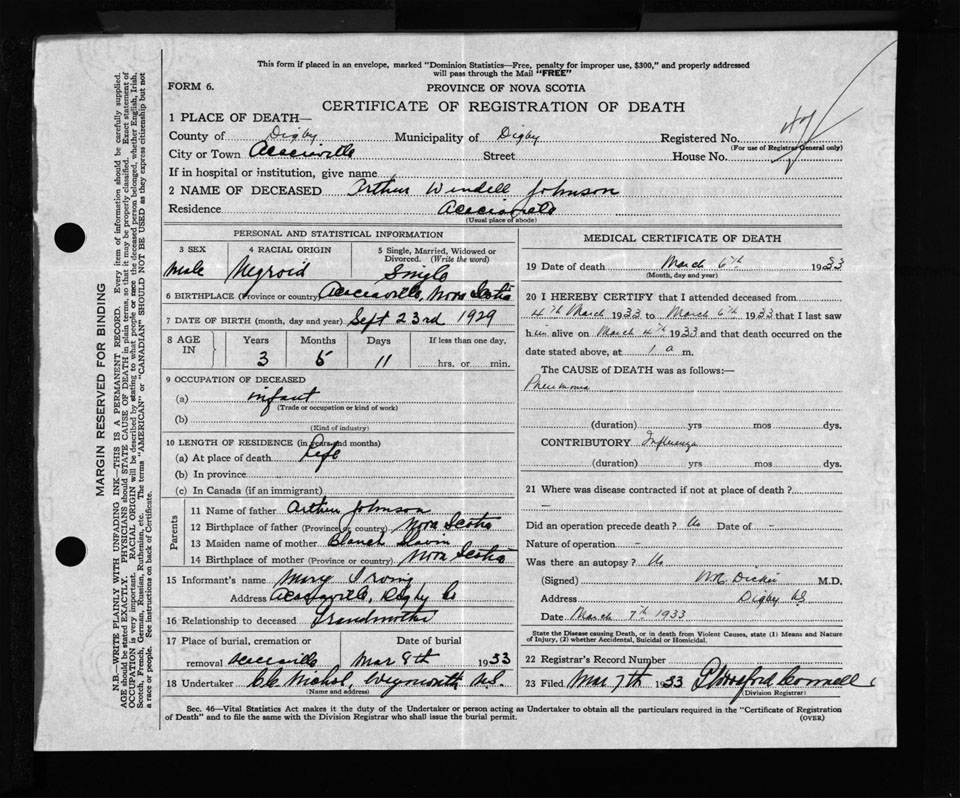 This form if placed in an envelope, marked "Dominion Statistics—Free, penalty for improper use, $300," and properly addressed
will pass through the Mail "FREE"
FORM 6.
PROVINCE OF NOVA SCOTIA
CERTIFICATE OF REGISTRATION OF DEATH
1 PLACE OF DEATH—
County of Digby Municipality of Digby Registered No.
(For use of Registrar General only)
City or Town Acaciaville Street House No.
If in hospital or institution, give name
2 NAME OF DECEASED Arthur Windell Johnson
Residence Acaciaville
(Usual place of abode)
PERSONAL AND STATISTICAL INFORMATION
3 SEX 4 RACIAL ORIGIN 5 Single, Married, Widowed or
Divorced. (Write the word)
Male Negroid Single
6 BIRTHPLACE (Province or country) Acaciaville, Nova Scotia
7 DATE OF BIRTH (month, day and year) Sept 23rd 1929
8 AGE IN Years Months Days If less than one day,
3 5 11 hrs. or min.
9 OCCUPATION OF DECEASED
(a) infant
(Trade or occupation or kind of work)
(b)
(Kind of industry)
10 LENGTH OF RESIDENCE (in years and months)
(a) At place of death Life
(b) In province
(c) In Canada (if an immigrant)
Parents
11 Name of father Arthur Johnson
12 Birthplace of father (Province or country) Nova Scotia
13 Maiden name of mother Blanch
14 Birthplace of mother (Province or country) Nova Scotia
15 Informant's name Mary Irving
Address Acaciaville, Digby Co
16 Relationship to deceased Grandmother
17 Place of burial, cremation or Date of burial
removal Acaciaville Mar 8th 1933
18 Undertaker Weymouth N.S.
(Name and address)
MEDICAL CERTIFICATE OF DEATH
19 Date of death March 6th 1933
(Month, day and year)
20 I HEREBY CERTIFY that I attended deceased from
4th March 1933 to March 6th 1933 that I last saw
him alive on March 4th 1933 and that death occurred on the
date stated above, at 1 a m.
The CAUSE OF DEATH was as follows:—
Pneumonia
(duration) yrs mos dys.
CONTRIBUTORY Influenza
(duration) yrs mos dys.
21 Where was disease contracted if not at place of death?
—
Did an operation precede death? No Date of -
Nature of operation -
Was there an autopsy? No
(Signed) Dickie M.D.
Address Digby NS
Date March 7th 1933
State the Disease causing Death, or in death from Violent Causes, state (1) Means and Nature
of Injury, (2) whether Accidental, Suicidal or Homicidal.
22 Registrar's Record Number
23 Filed Mar 7th 1933
(Division Registrar)
Sec. 46—Vital Statistics Act makes it the duty of the Undertaker or person acting as Undertaker to obtain all the particulars required in the "Certificate of Registration
of Death" and to file the same with the Division Registrar who shall issue the burial permit.
(OVER)
MARGIN RESERVED FOR BINDING
N.B.—WRITE PLAINLY WITH UNFADING INK—THIS IS A PERMANENT RECORD. Every item of information should be carefully supplied.
AGE should be stated EXACTLY. PHYSICIANS should STATE CAUSE OF DEATH in plain terms, so that it may be properly classified. Exact statement of
OCCUPATION is very important. RACIAL ORIGIN will be described by stating to what people or race the deceased person belonged, whether English, Irish,
Scotch, French, German, Russian, Ruthenian, etc. The terms "AMERICAN" or "CANADIAN" SHOULD NOT BE USED as they express citizenship but not
a race or people. See instructions on back of Certificate.